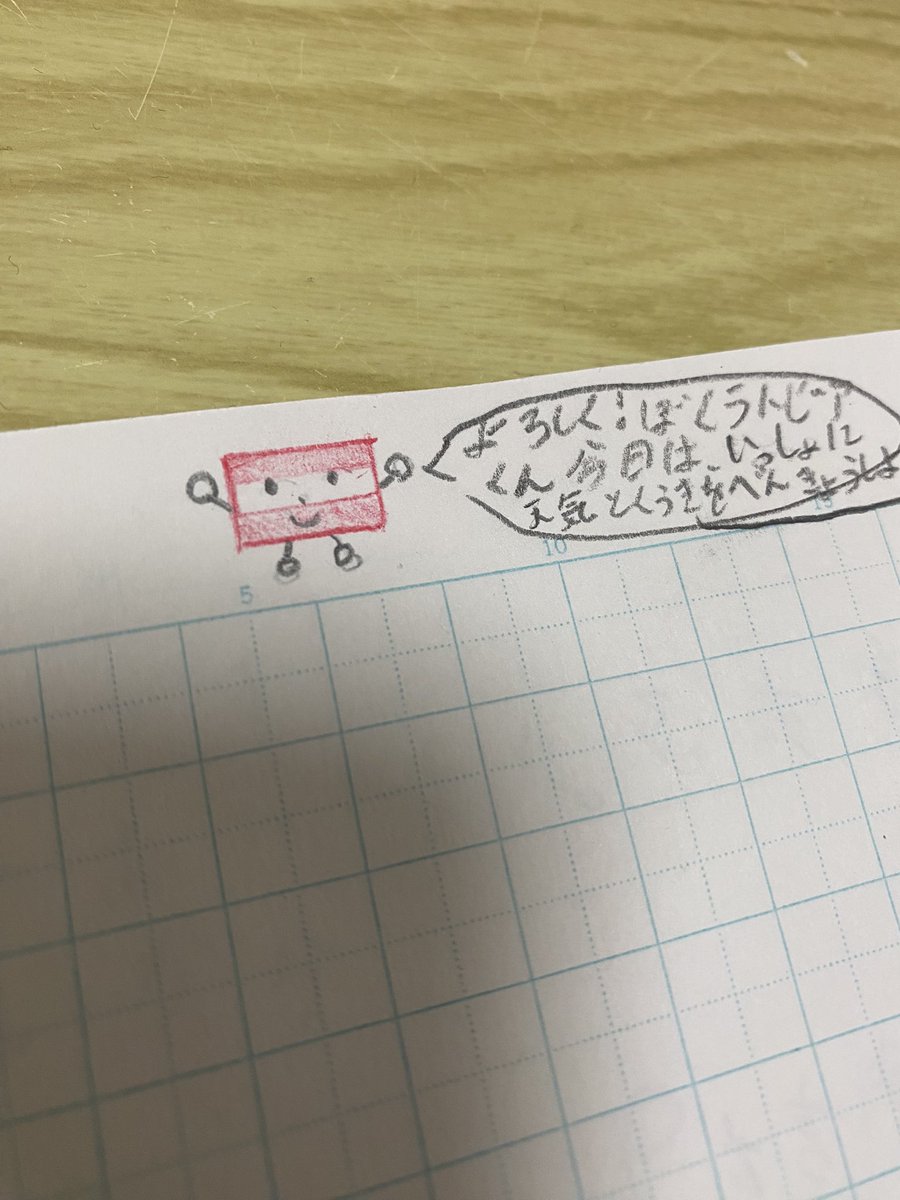 よろしく!ぼくラトビア
くん今日は、いっしょに
天気とくうきをべんきょうしよ
5
10
15